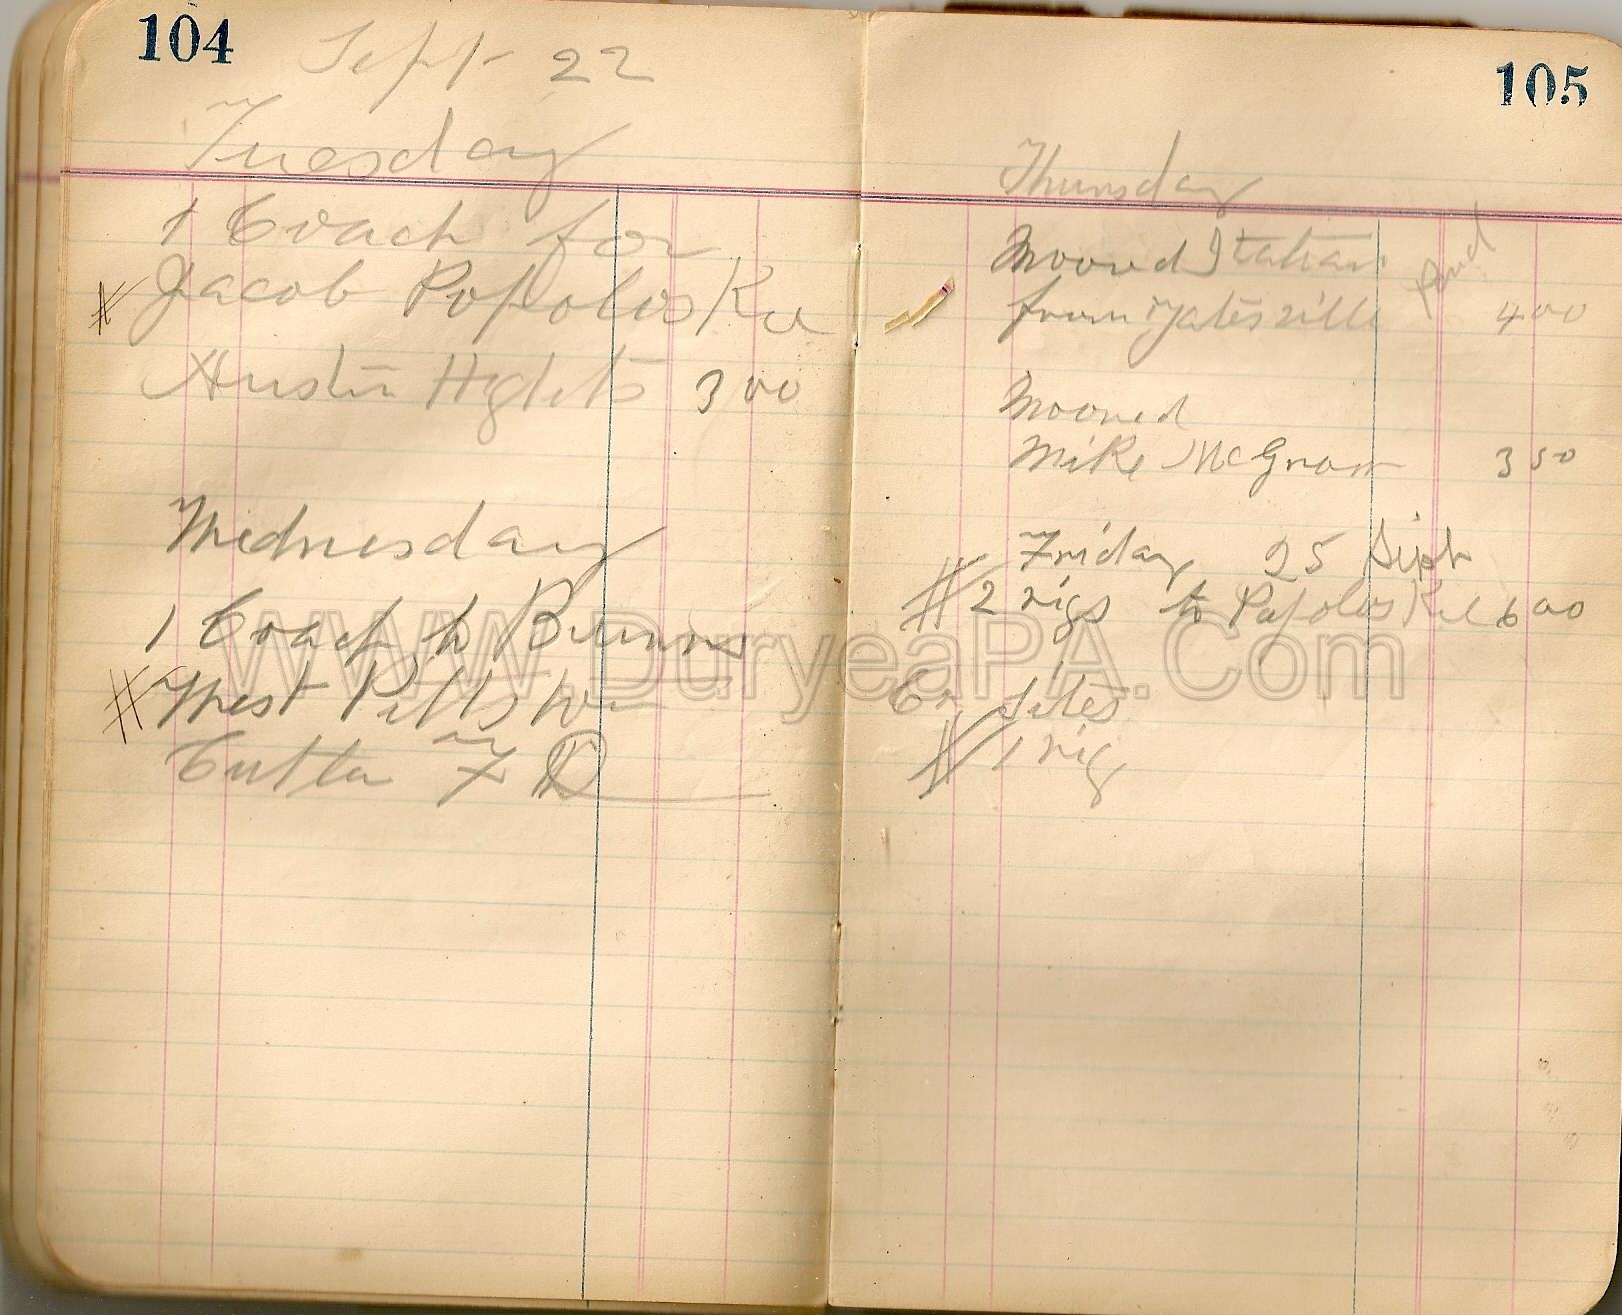 104
Sept 22
Tuesday
1 Coach for
Jacob Popoloskie
Austin Hghts 3 00
Wednesday
1 Coach to Burns
West Pittston
Cutter F
105
Thursday
Mooved Italian Paid
from Yatesville 4 00
Mooved
Mike McGraw 3 50
Friday 25 Sept
# 2 rigs to Popoloskie 6 00
# 1 rig
WWW.DuryeaPA.Com